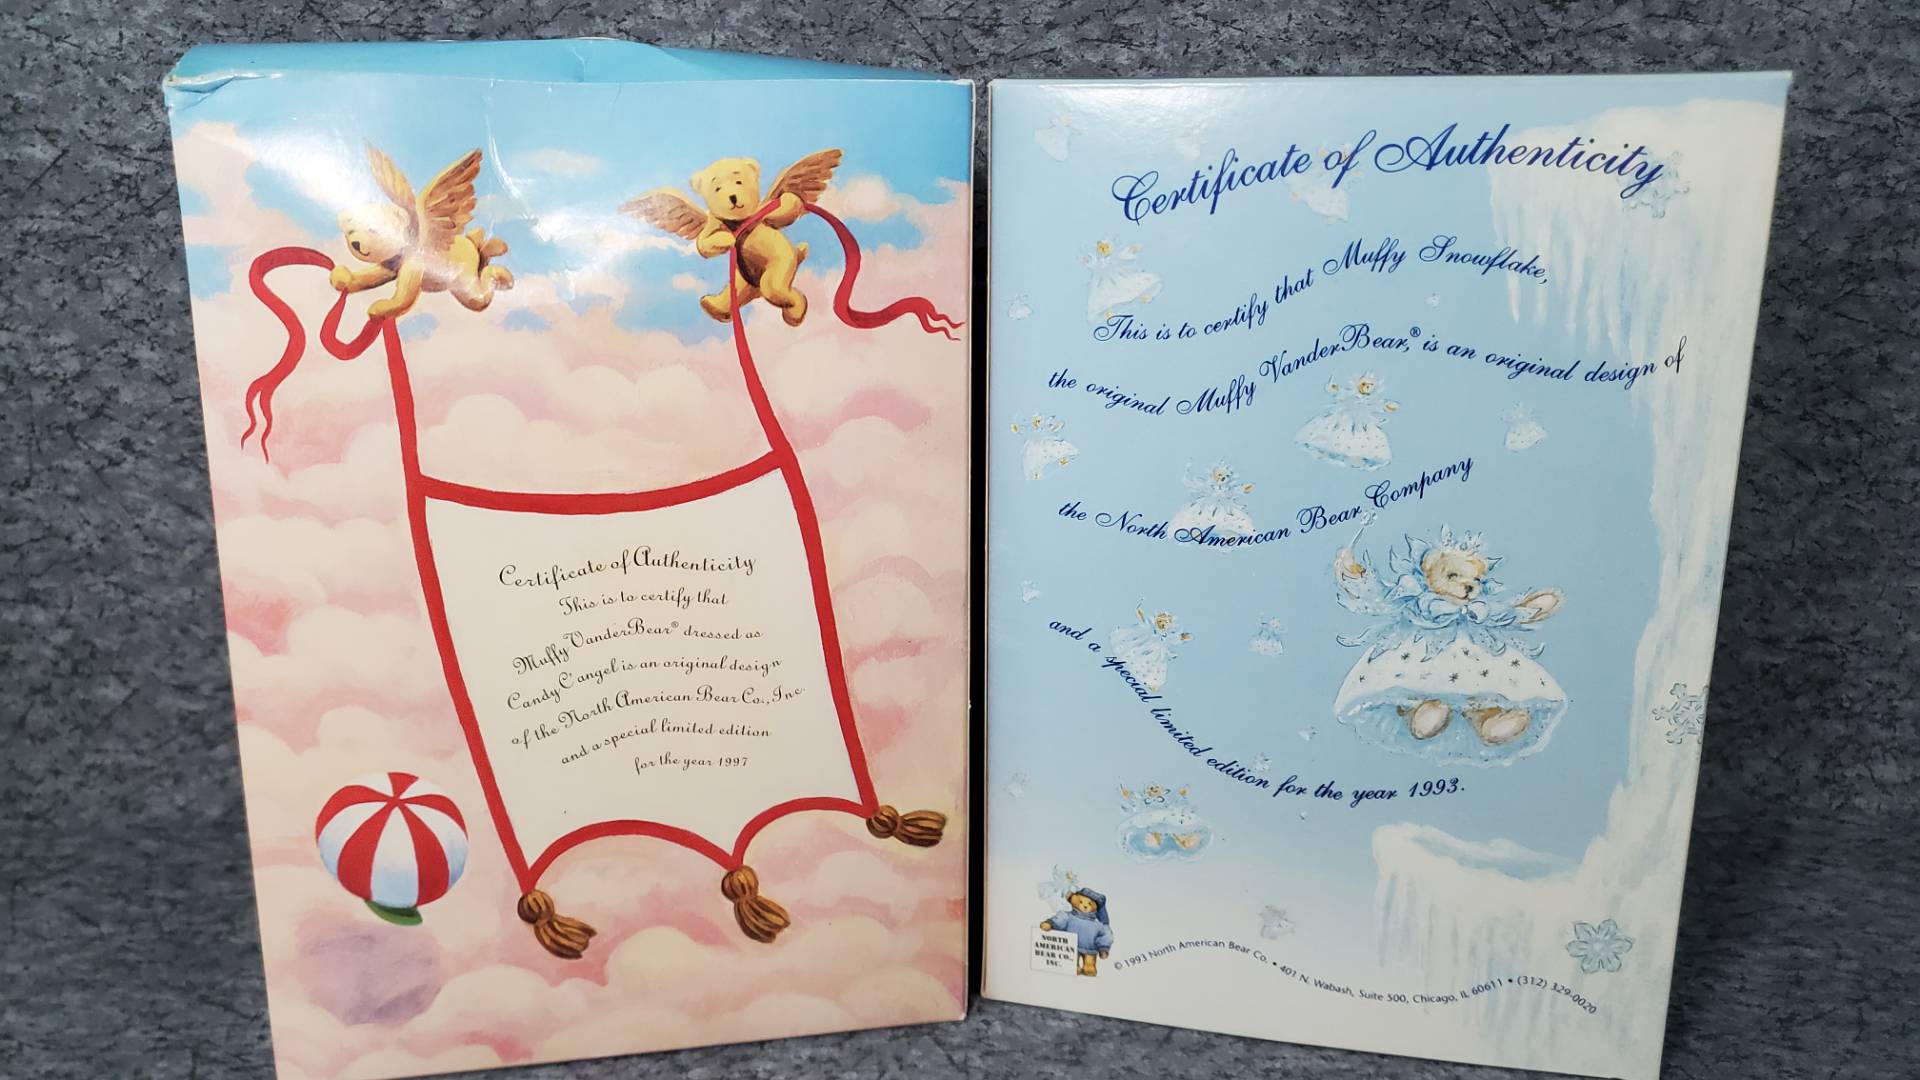 Certificate of Authenticity
This is to certify that
Muffy VanderBear® dressed as
Candy C'angel is an original design
of the North American Bear Co., Inc.
and a special limited edition
for the year 1997
Certificate of Authenticity
This is to certify that Muffy Snowflake,
the original Muffy VanderBear,® is an original design of
the North American Bear Company
and a special limited edition for the year 1993.
NORTH
AMERICAN
BEAR CO.,
INC.
© 1993 North American Bear Co. • 401 N. Wabash, Suite 500, Chicago, IL 60611 • (312) 329-0020